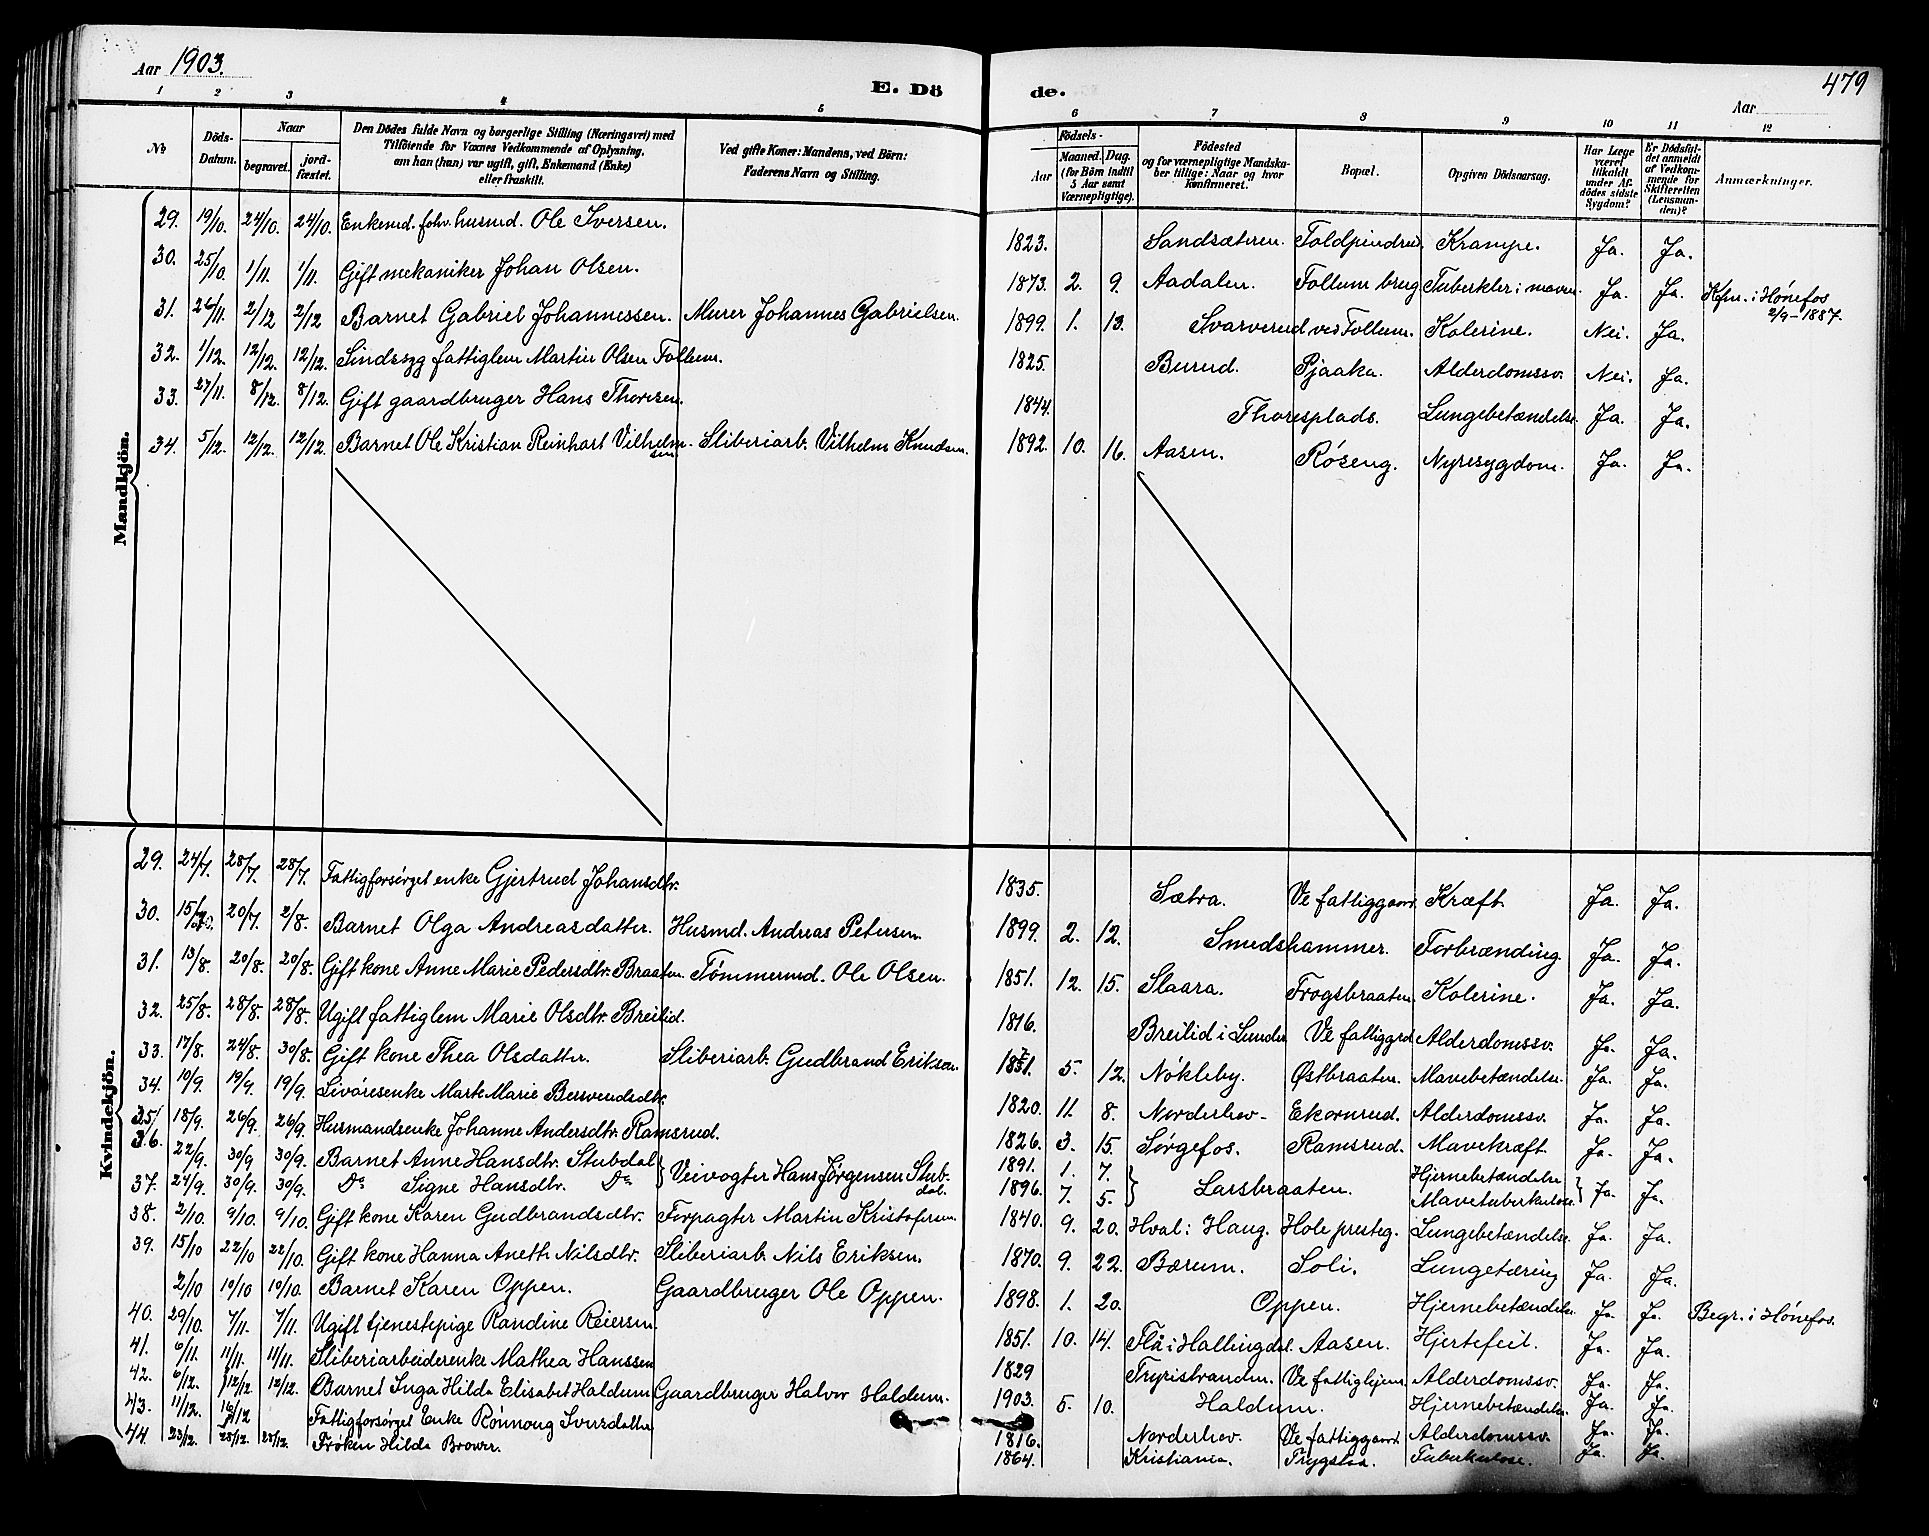 Aar 1903.
E. Dö
de.
Aar
479
1 2 3 4 5 6 7 8 9 10 11 12
No
Döds-Datum.
Naar
begravet.
jord-fæstet.
Den Dödes fulde Navn og borgerlige Stilling (Næringsvei) med
Tilföiende for Voxnes Vedkommende af Oplysning,
om han (hun) var ugift, gift, Enkemand (Enke)
eller fraskilt.
Ved gifte Koner: Mandens, ved Börn:
Faderens Navn og Stilling.
Födsels-
Aar
Maaned. Dag.
(for Börn indtil
5 Aar samt
Værnepligtige).
Födested
og for værnepligtige Mandska-
ber tillige: Naar og hvor
Konfirmeret.
Bopæl.
Opgiven Dödsaarsag.
Har Læge
været
tilkaldt
under Af-
dödes sidste
Sygdom?
Er Dödsfal-
det anmeldt
af Vedkom-
mende for
Skifteretten
(Lensman-
den)?
Anmærkninger.
Mandkjön.
29. 19/10. 24/10. 24/10. Enkemd. fohv. husmd. Ole Iversen. 1823. Sandsæteren. Krampe. Ja. Ja.
30. 25/10. 1/11. 1/11. Gift mekaniker Johan Olsen. 1873. 2. 9. Aadalen. Follum brug Tuberkler i maven. Ja. Ja. Kfm. i Hönefos 2/9-1887.
31. 26/11. 2/12 2/12 Barnet Gabriel Johannessen. Murer Johannes Gabrielsen. 1899. 1. 13. Svarverud ved Follum. Kolerine. Nei. Ja.
32. 1/12. 12/12. 12/12. Sindssyg fattiglem Martin Olsen Follum. 1825. Burud. Pjaaka. Alderdomssv. Nei. Ja.
33. 27/11. 8/12. 8/12. Gift gaardbruger Hans Thoresen. 1844. Thoresplads. Lungebetændelse. Ja. Ja.
34. 5/12. 12/12. 12/12. Barnet Ole Kristian Reinhart Vilhelmsen. Sliberiarb. Vilhelm Knudsen. 1892. 10. 16. Aasen. Röseng. Nyresygdom. Ja. Ja.
Kvindekjön.
29. 24/7. 28/7. 28/7. Fattigforsörget enke Gjertrud Johansdtr. 1835. Sætra. Ve fattiggaard Kræft. Ja. Ja.
30. 15/7. 20/7. 2/8. Barnet Olga Andreasdatter. Husmd. Andreas Petersen. 1899. 2. 12. Smedshammer. Forbrænding Ja. Ja.
31. 13/8. 20/8. 20/8. Gift kone Anne Marie Pedersdtr. Braaten. Tömmermd. Ole Olsen. 1851. 12. 15. Slaara. Frogsbraaten. Kolerine. Ja. Ja.
32. 25/8. 28/8. 28/8. Ugift fattiglem Marie Olsdtr. Breilid. 1816. Breilid i Lunder Ve fattiggrd Alderdomssv. Ja. Ja.
33. 17/8. 24/8. 30/8. Gift kone Thea Olsdatter. Sliberiarb. Gudbrand Eriksen. 5. 12. Nökleby. Østbraaten. Mavebetændelse. Ja. Ja.
34. 10/9. 19/9. 19/9. Livöresenke Marte Marie Bersvendsdtr. 1820. 11. 8. Norderhov. Ekornrud. Alderdomssv. Ja. Ja.
35. 18/9. 26/9. 26/9. Husmandsenke Johanne Andersdtr. Ramsrud. 1826. 3. 15. Sørgefos. Ramsrud. Mavekræft. Ja. Ja.
36. 22/9. 30/9 30/9. Barnet Anne Hansdtr. Stubdal } Veivogter Hans Jörgensen Stubdal. 1891. 1. 7. } Larsbraaten. Hjernebetændelse } Ja. Ja.
37. 24/9. 30/9. 30/9. Do Signe Hansdtr. Do 1896. 7. 5. Mavetuberkulose
38. 2/10. 9/10. 9/10. Gift kone Karen Gudbrandsdtr. Forpagter Martin Kristofersen. 1840. 9. 20. Hval i Haug. Hole presteg. Lungebetændelse. Ja. Ja.
39. 15/10 22/10 22/10. Gift kone Hanna Aneth Nilsdtr. Sliberiarb. Nils Eriksen. 1870. 9. 22. Bærum. Soli. Lungetæring Ja. Ja.
2/10 10/10 10/10. Barnet Karen Oppen. Gaardbruger Ole Oppen. 1898. 1. 20. Oppen. Hjernebetændelse. Ja. Ja. Begr. i Hönefos.
40. 29/10. 7/11. 7/11. Ugift tjenestepige Randine Reiersen. 1851. 10. 14. Flå i Hallingdal. Aasen. Hjertefeil. Ja. Ja.
41. 6/11. 11/11. 11/11. Sliberiarbeiderenke Mathea Hanssen 1829 Tyristranden. Ve fattighjem. Alderdomssv. Ja. Ja.
42. 6/12. 12/12. 12/12. Barnet Inga Hilda Elisabet Haldum Gaardbruger Halvor Haldum. 1903. 5. 10. Haldum. Hjernebetændelse. Ja. Ja.
43. 11/12. 16/12 Fattigforsörget Enke Rönnoug Iversdatter 1816. Norderhov. Ve fattiggaard. Alderdomssv. Ja. Ja.
44. 23/12. 28/12. 28/12. Fröken Hilda Brower. 1864. Kristiania. Trygstad. Tuberkulose. Ja. Ja.